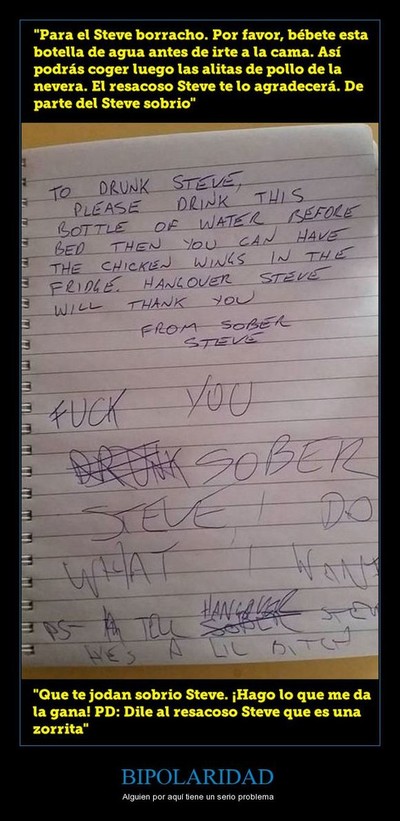 "Para el Steve borracho. Por favor, bébete esta
botella de agua antes de irte a la cama. Así
podrás coger luego las alitas de pollo de la
nevera. El resacoso Steve te lo agradecerá. De
parte del Steve sobrio"
TO DRUNK STEVE,
PLEASE DRINK THIS
BOTTLE OF WATER BEFORE
BED THEN YOU CAN HAVE
THE CHICKEN WINGS IN THE
FRIDGE. HANGOVER STEVE
WILL THANK YOU
FROM SOBER
STEVE
FUCK YOU
DRUNK SOBER
STEVE, I DO
WHAT I WANT
PS- TELL HANGOVER SOBER STEVE
HES A LIL BITCH
"Que te jodan sobrio Steve. ¡Hago lo que me da
la gana! PD: Dile al resacoso Steve que es una
zorrita"
BIPOLARIDAD
Alguien por aquí tiene un serio problema